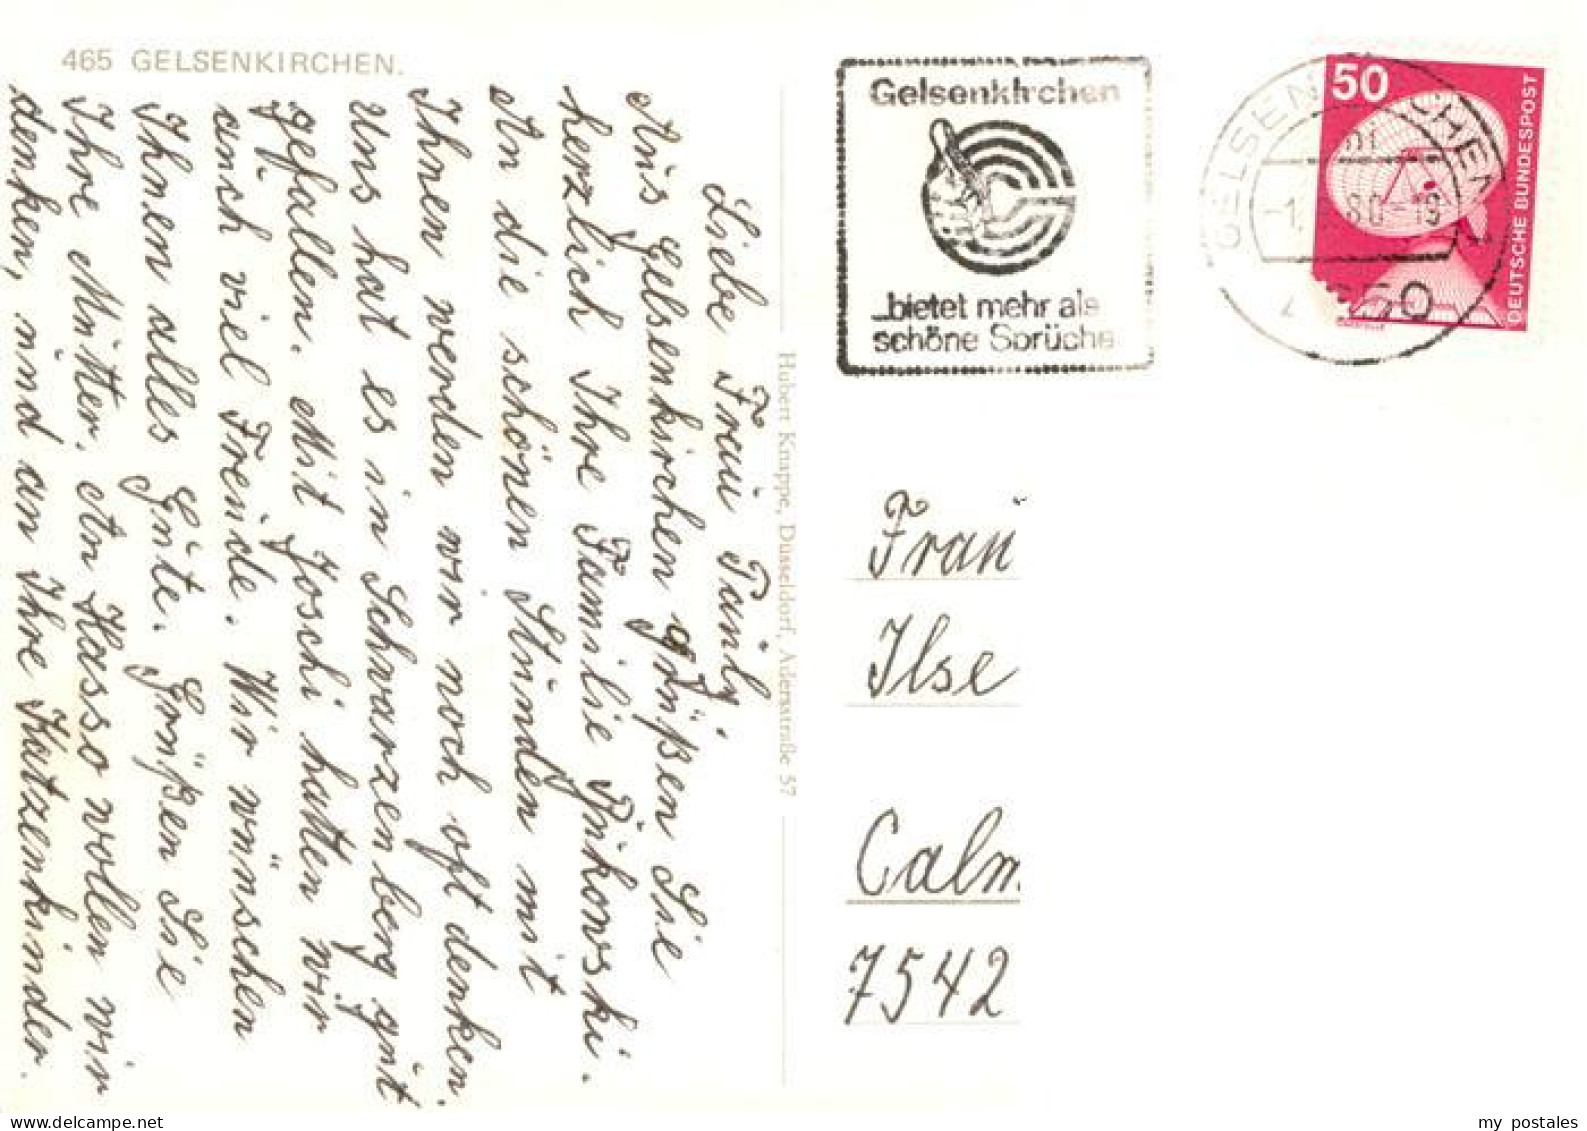 465 GELSENKIRCHEN.
Liebe Frau Pauly!
Aus Gelsenkirchen grüßen Sie
herzlich Ihre Familie Pükowski.
An die schönen Stunden mit
Ihnen werden wir noch oft denken.
Uns hat es in Schwarzenberg gut
gefallen. Mit Joschi hatten wir
auch viel Freude. Wir wünschen
Ihnen alles Gute. Grüßen Sie
Ihre Mutter. An Hasso wollen wir
denken, und an Ihre Katzenkinder.
Hubert Knappe, Düsseldorf, Adersstraße 57
Gelsenkirchen
...bietet mehr als
schöne Sprüche
GELSENKIRCHEN
50
DEUTSCHE BUNDESPOST
Frau
Ilse
Calm
7542
my postales